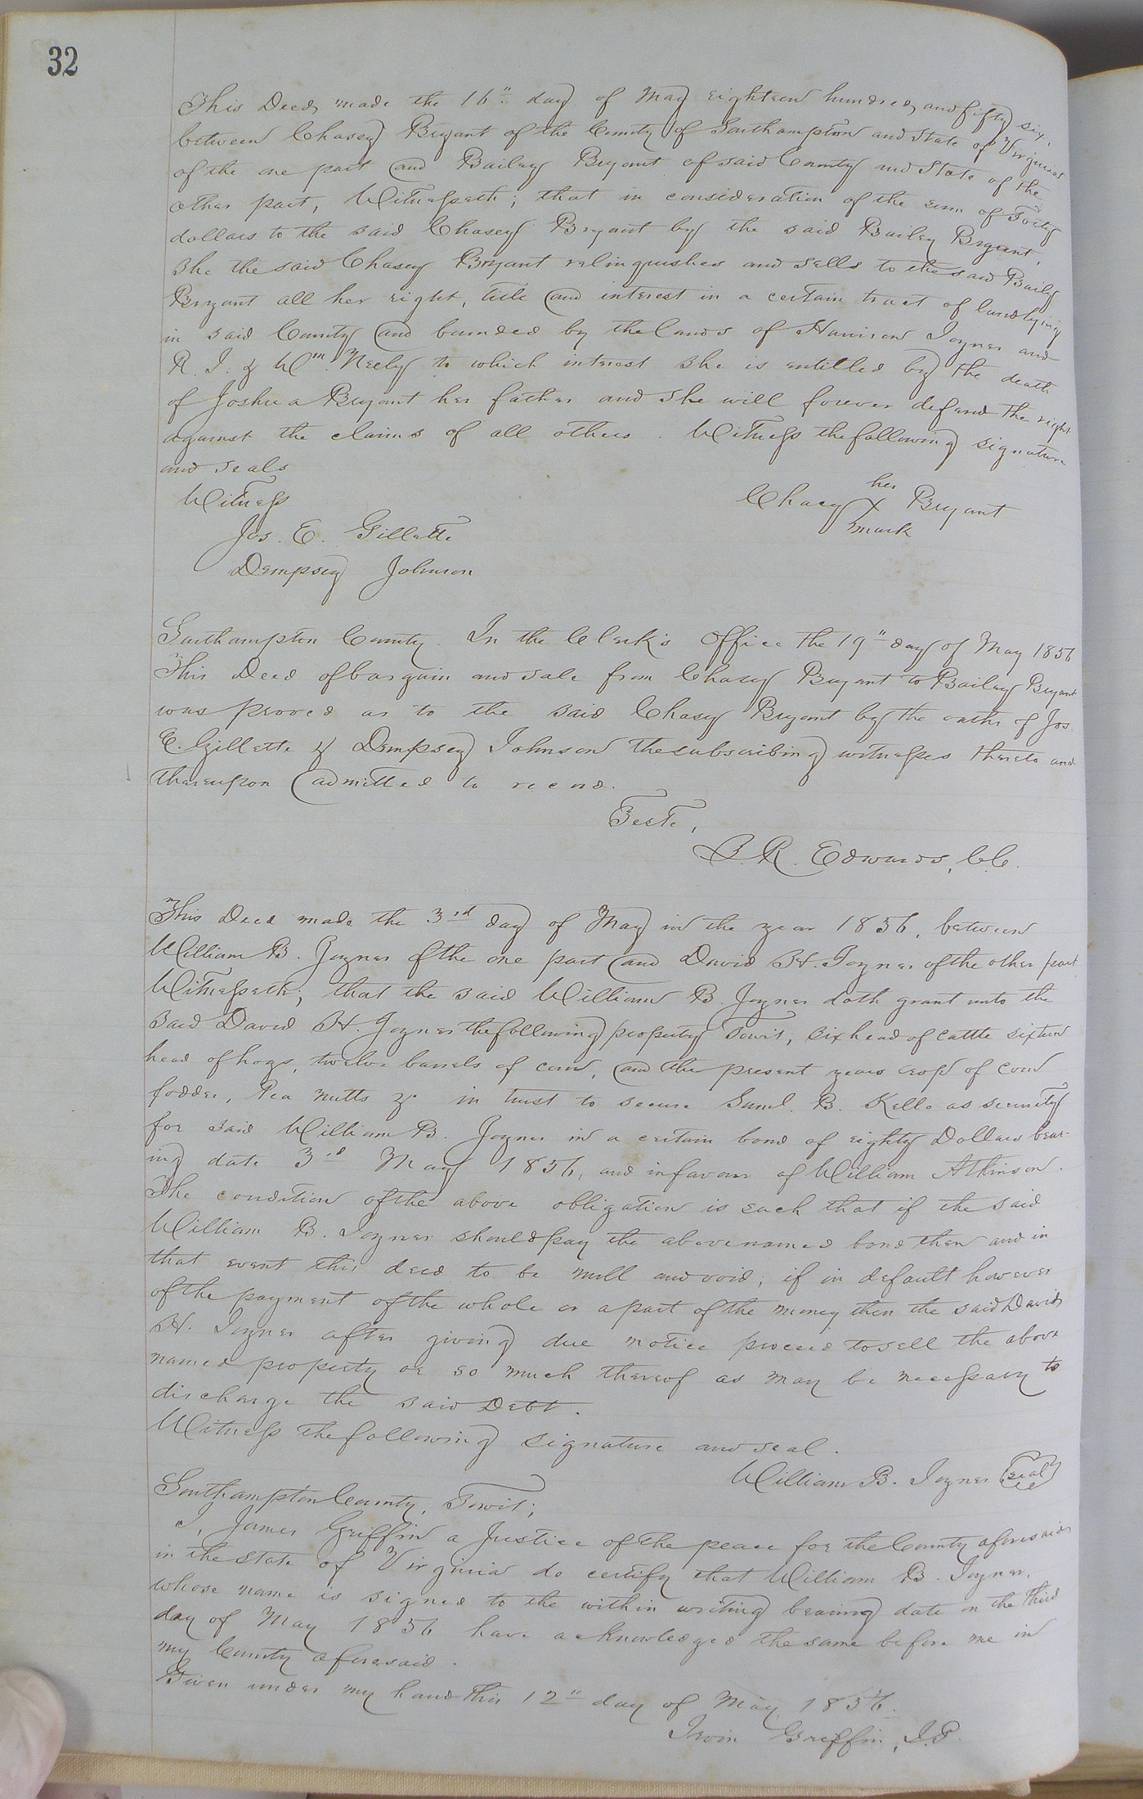 32
This Deed made the 16" day of May eighteen hundred and fifty six,
between Chasey Bryant of the County of Southampton and State of Virginia
of the one part and Bailey Bryant of said County and State of the
other part, Witnesseth; that in consideration of the sum of Forty
dollars to the said Chasey Bryant by the said Bailey Bryant,
she the said Chasey Bryant relinquishes and sells to the said Baily
Bryant all her right, title and interest in a certain tract of land lying
in said County and bounded by the lands of Harrison Joyner and
R. J. & Wm. Neely to which interest she is entitled by the death
of Joshua Bryant her father and she will forever defend the right
against the claims of all others. Witness the following signature
and seals
Witness
Chacy her X mark Bryant
Jos. E. Gillette
Dempsey Johnson
Southampton County. In the Clerk's Office the 19" day of May 1856
This Deed of bargain and sale from Chasey Bryant to Bailey Bryant
was proved as to the said Chasey Bryant by the oaths of Jos.
E. Gillette & Dempsey Johnson the subscribing witnesses thereto and
thereupon admitted to record.
Teste,
L. R. Edwards, C.C.
This Deed made the 3rd day of May in the year 1856, between
William B. Joyner of the one part and David H. Joyner of the other part
Witnesseth; that the said William B. Joyner doth grant unto the
said David H. Joyner the following property Towit, six head of cattle sixteen
head of hogs, twelve barrels of corn, and the present years crop of corn
fodder, Pea nutts &c in trust to secure Saml. B. Kello as security
for said William B. Joyner in a certain bond of eighty Dollars bear-
ing date 3rd May 1856, and in favour of William Atkinson.
The condition of the above obligation is such that if the said
William B. Joyner should pay the above named bond then and in
that event this deed to be null and void; if in default however
of the payment of the whole or a part of the money then the said David
H. Joyner after giving due notice proceed to sell the above
named property or so much thereof as may be necessary to
discharge the said Debt.
Witness the following signature and seal.
William B. Joyner (seal)
Southampton County, Towit;
I, James Griffin a Justice of the peace for the County aforesaid
in the State of Virginia do certify that William B. Joyner,
whose name is signed to the within writing bearing date on the third
day of May 1856 have acknowledged the same before me in
my County aforesaid.
Given under my hand this 12" day of May 1856.
Griffin, J.P.